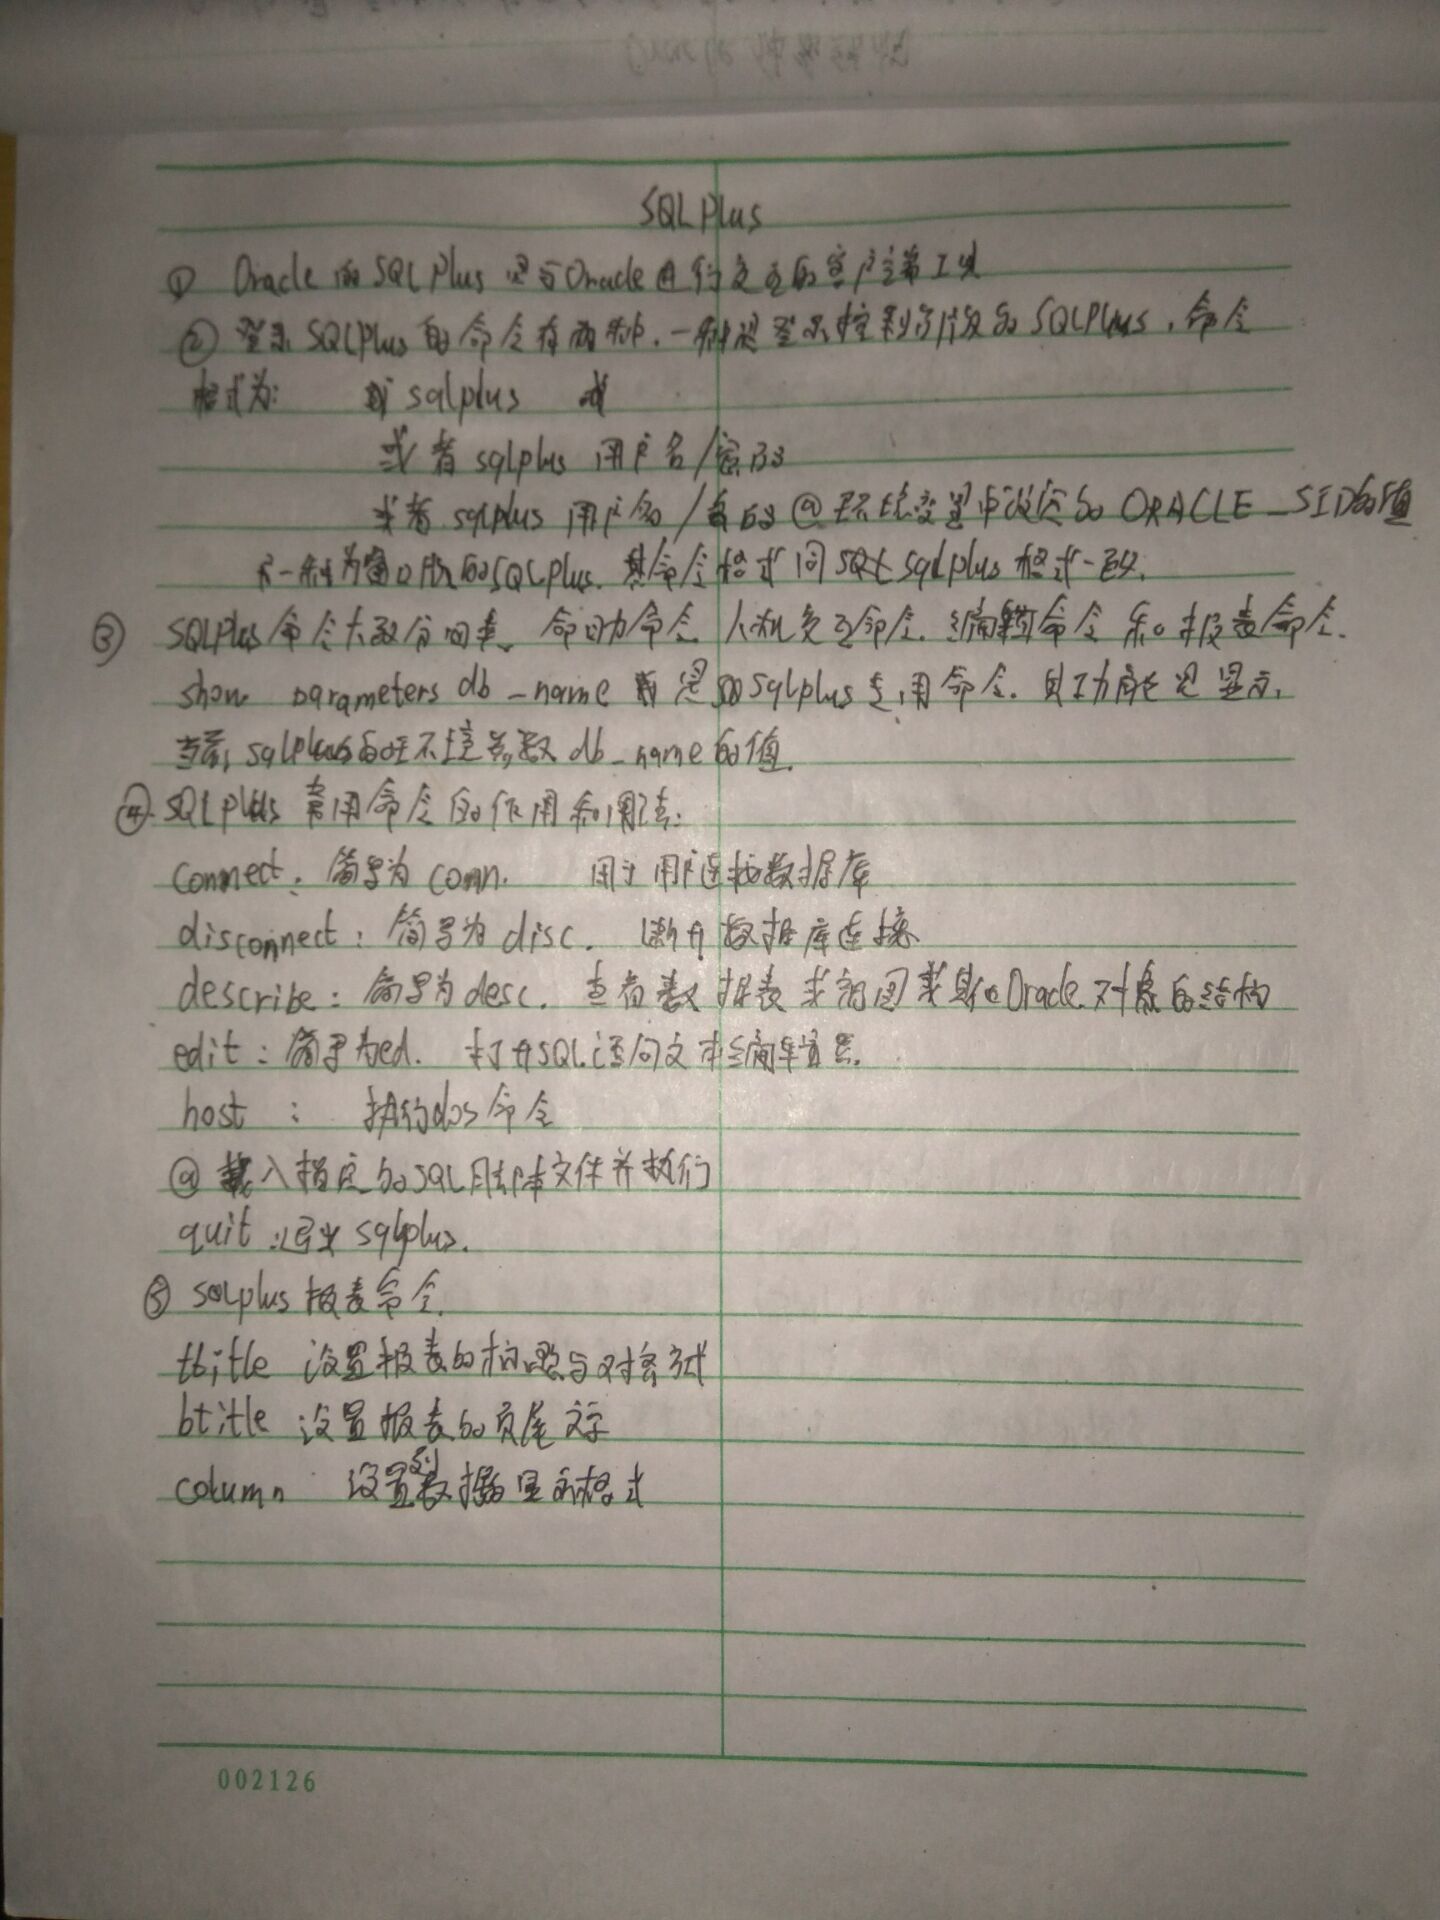 SQLPlus
① Oracle的SQLPlus是与Oracle进行交互的客户端工具
② 登录SQLPlus的命令有两种.一种是登录控制台版的SQLPlus,命令
格式为: sqlplus 或
或者 sqlplus 用户名/密码
或者 sqlplus 用户名/密码@环境变量中设定的ORACLE_SID的值
另一种为窗口版的SQLPlus.其命令格式同sqlplus格式一致.
③ SQLPlus命令大致分四类. 帮助命令 人机交互命令.编辑命令和报表命令.
show parameters db_name 是sqlplus专用命令.其功能是显示,
当前sqlplus的环境参数db_name的值.
④ SQLplus常用命令的作用和用法:
connect: 简写为conn. 用于用户连接数据库
disconnect: 简写为disc. 断开数据库连接
describe: 简写为desc. 查看数据表或视图或其他Oracle对象的结构
edit: 简写为ed. 打开SQL语句文本编辑器.
host : 执行dos命令
@ 载入指定的SQL脚本文件并执行
quit :退出sqlplus.
⑤ sqlplus报表命令.
tbitle 设置报表的标题与对格式
btitle 设置报表的页尾文字
column 设置列数据显示格式
002126